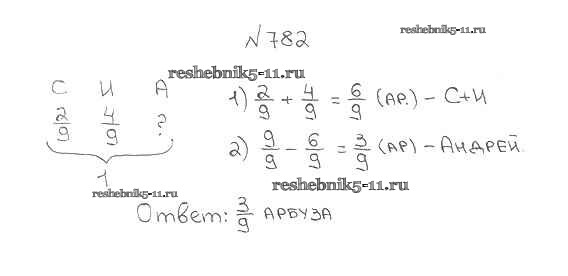 №782
reshebnik5-11.ru
reshebnik5-11.ru
С И А
2/9 4/9 ?
1
1) 2/9 + 4/9 = 6/9 (АР.) – С+И
2) 9/9 – 6/9 = 3/9 (АР) – АНДРЕЙ.
reshebnik5-11.ru
reshebnik5-11.ru
Ответ: 3/9 АРБУЗА